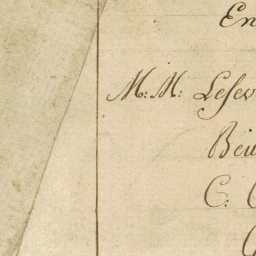 En
M: M: Lesev
Beu
C. C